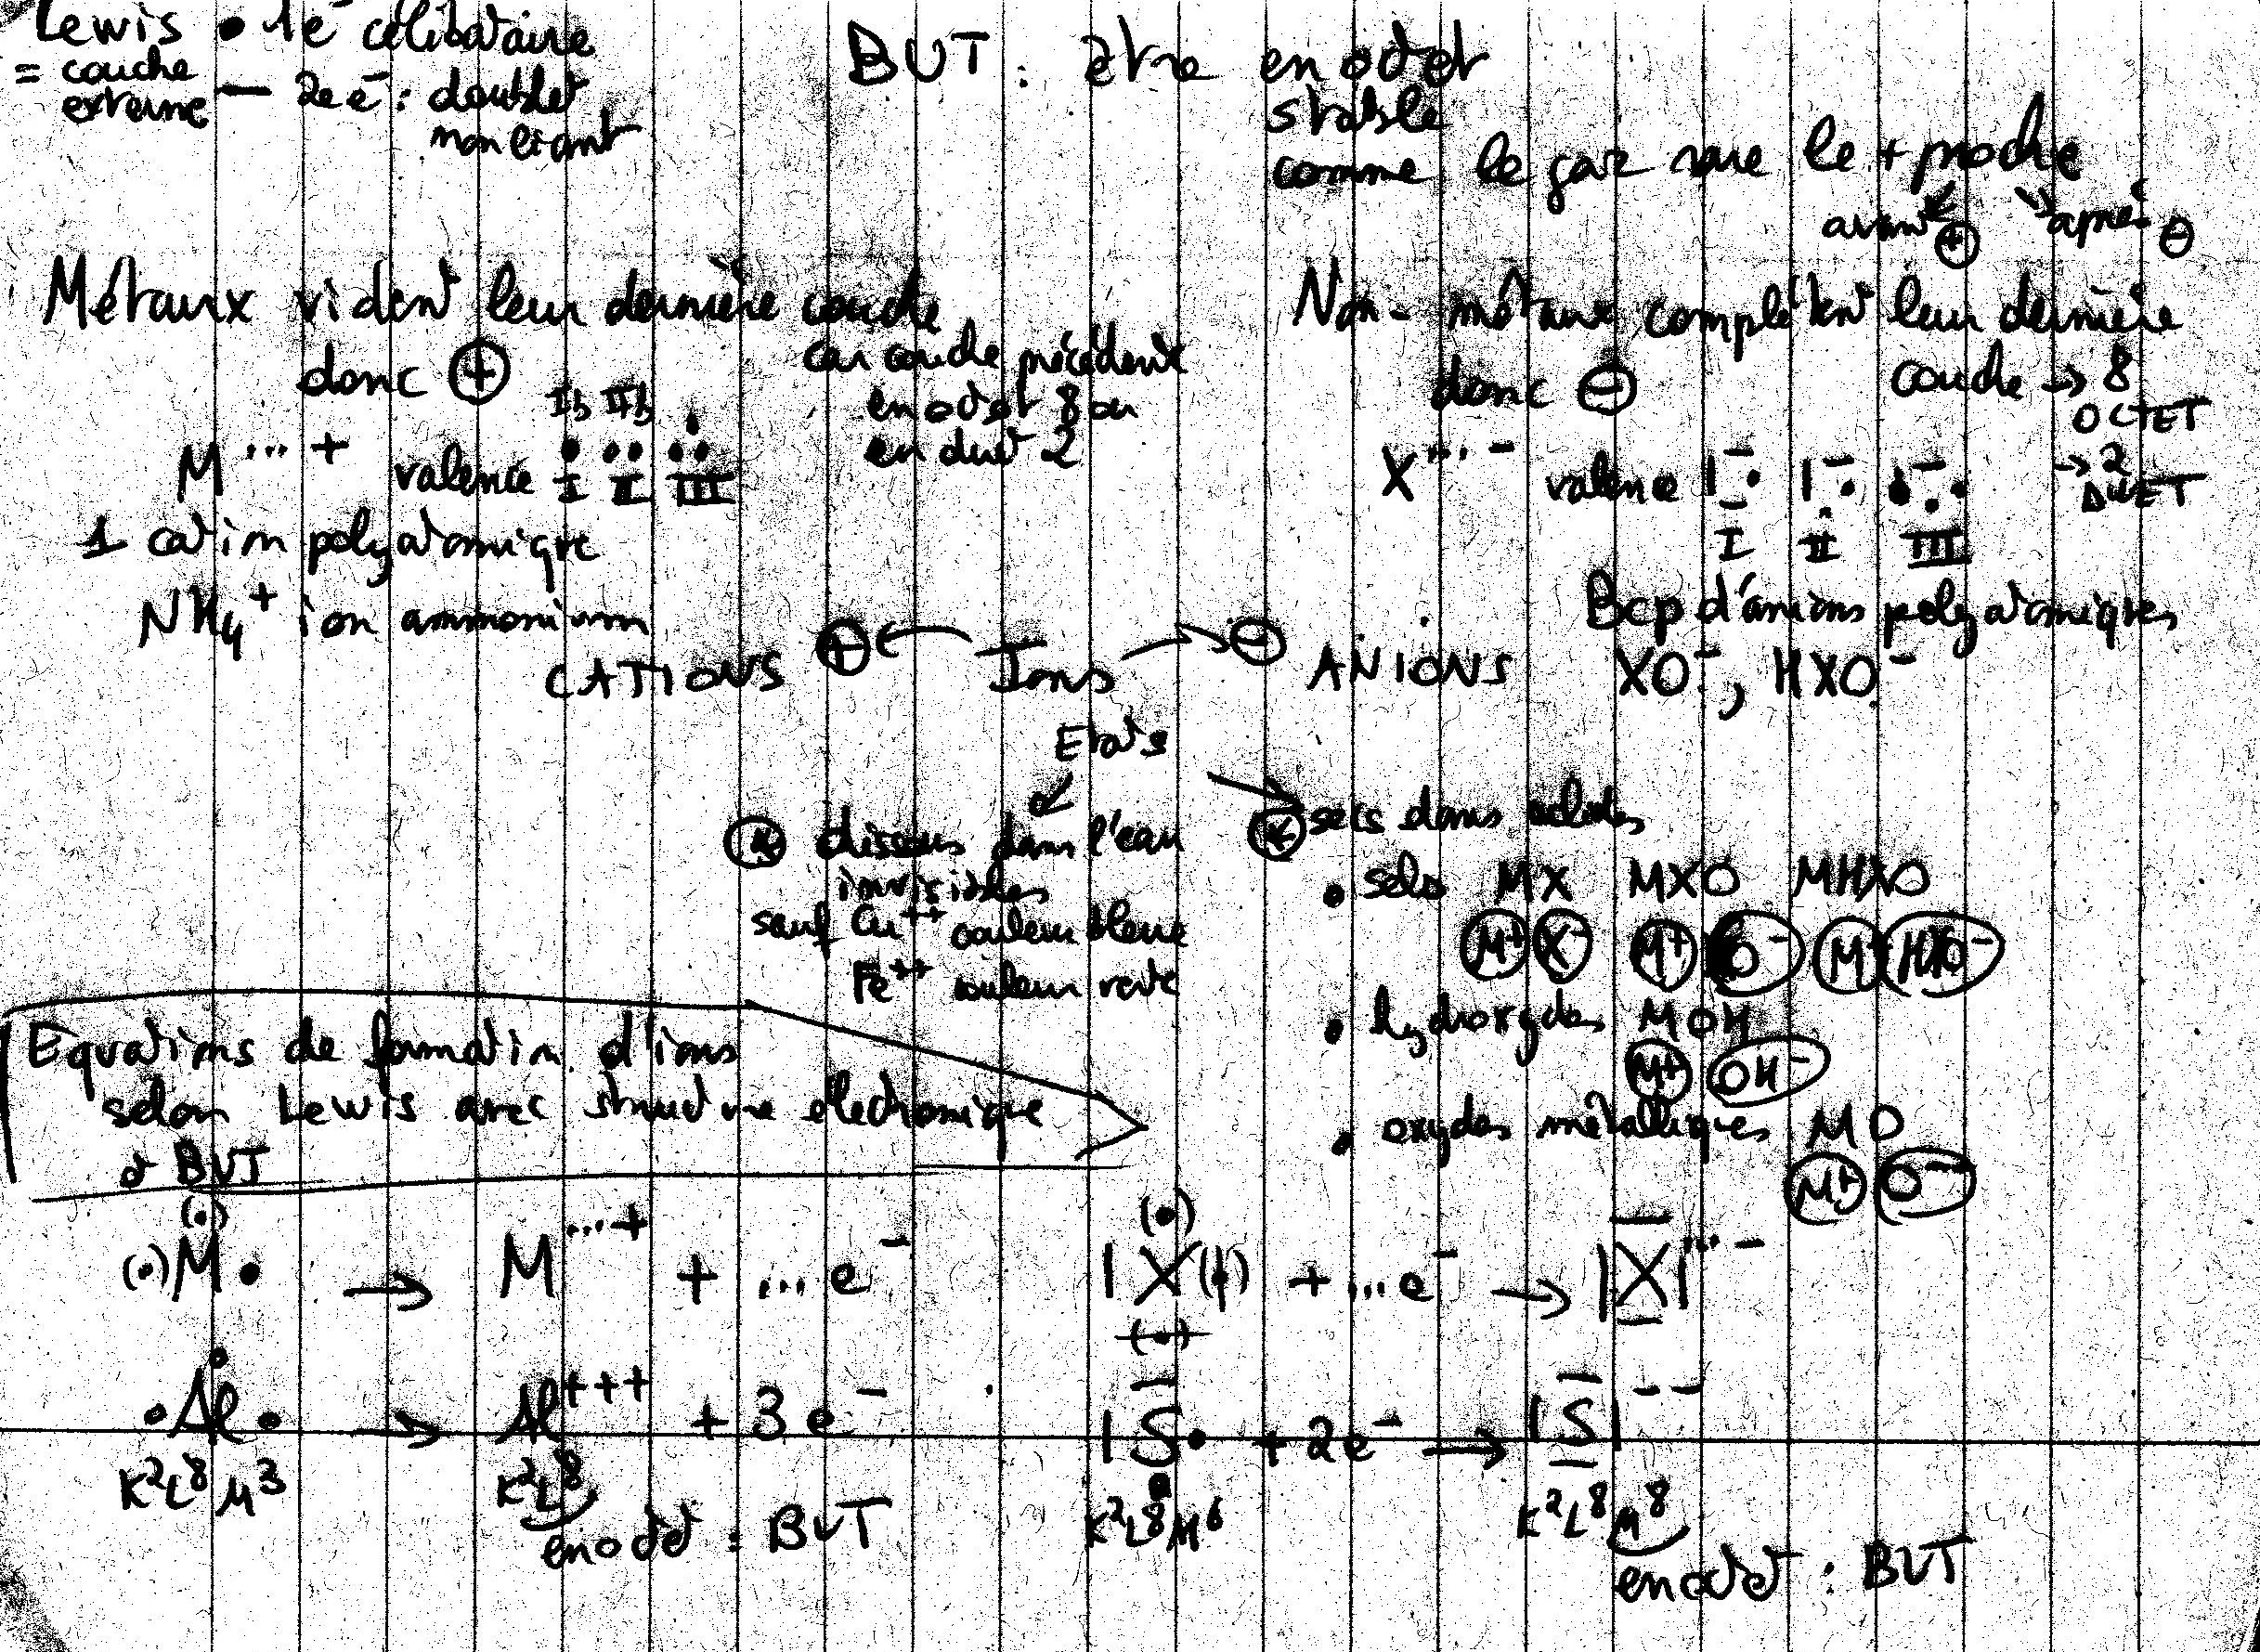 Lewis • 1e⁻ célibataire
= couche externe — 2e e⁻ : doublet non liant
BUT : être en octet
stable
comme le gaz rare le + proche
avant ⊕ après ⊖
Métaux vident leur dernière couche
car couche précédente
en octet 8 ou
en duet 2
donc ⊕
Ib IIb
M ...+ valence • •• •••
I II III
1 cation polyatomique
NH4+ ion ammonium
Non-métaux complètent leur dernière
couche → 8
OCTET
→ 2
DUET
donc ⊖
X ...- valence
I II III
Bcp d'anions polyatomiques
XO⁻, HXO⁻
CATIONS ⊕ ← Ions → ⊖ ANIONS
Etats
dissous dans l'eau
invisibles
sauf Cu++ couleur bleue
Fe++ couleur verte
secs dans solides
• sels MX MXO MHXO
M+ X- M+ XO- M+ HXO-
• hydroxydes MOH
M+ OH-
• oxydes métalliques MO
M+ O--
Equations de formation d'ions
selon Lewis avec structure électronique
et BUT
(•)M• → M ...+ + ... e⁻
|X(•) + ... e⁻ → |X| ...-
•Al• → Al+++ + 3 e⁻
K²L⁸M³ K²L⁸
en octet : BUT
|S• + 2e⁻ → |S|--
K²L⁸M⁶ K²L⁸M⁸
en octet : BUT